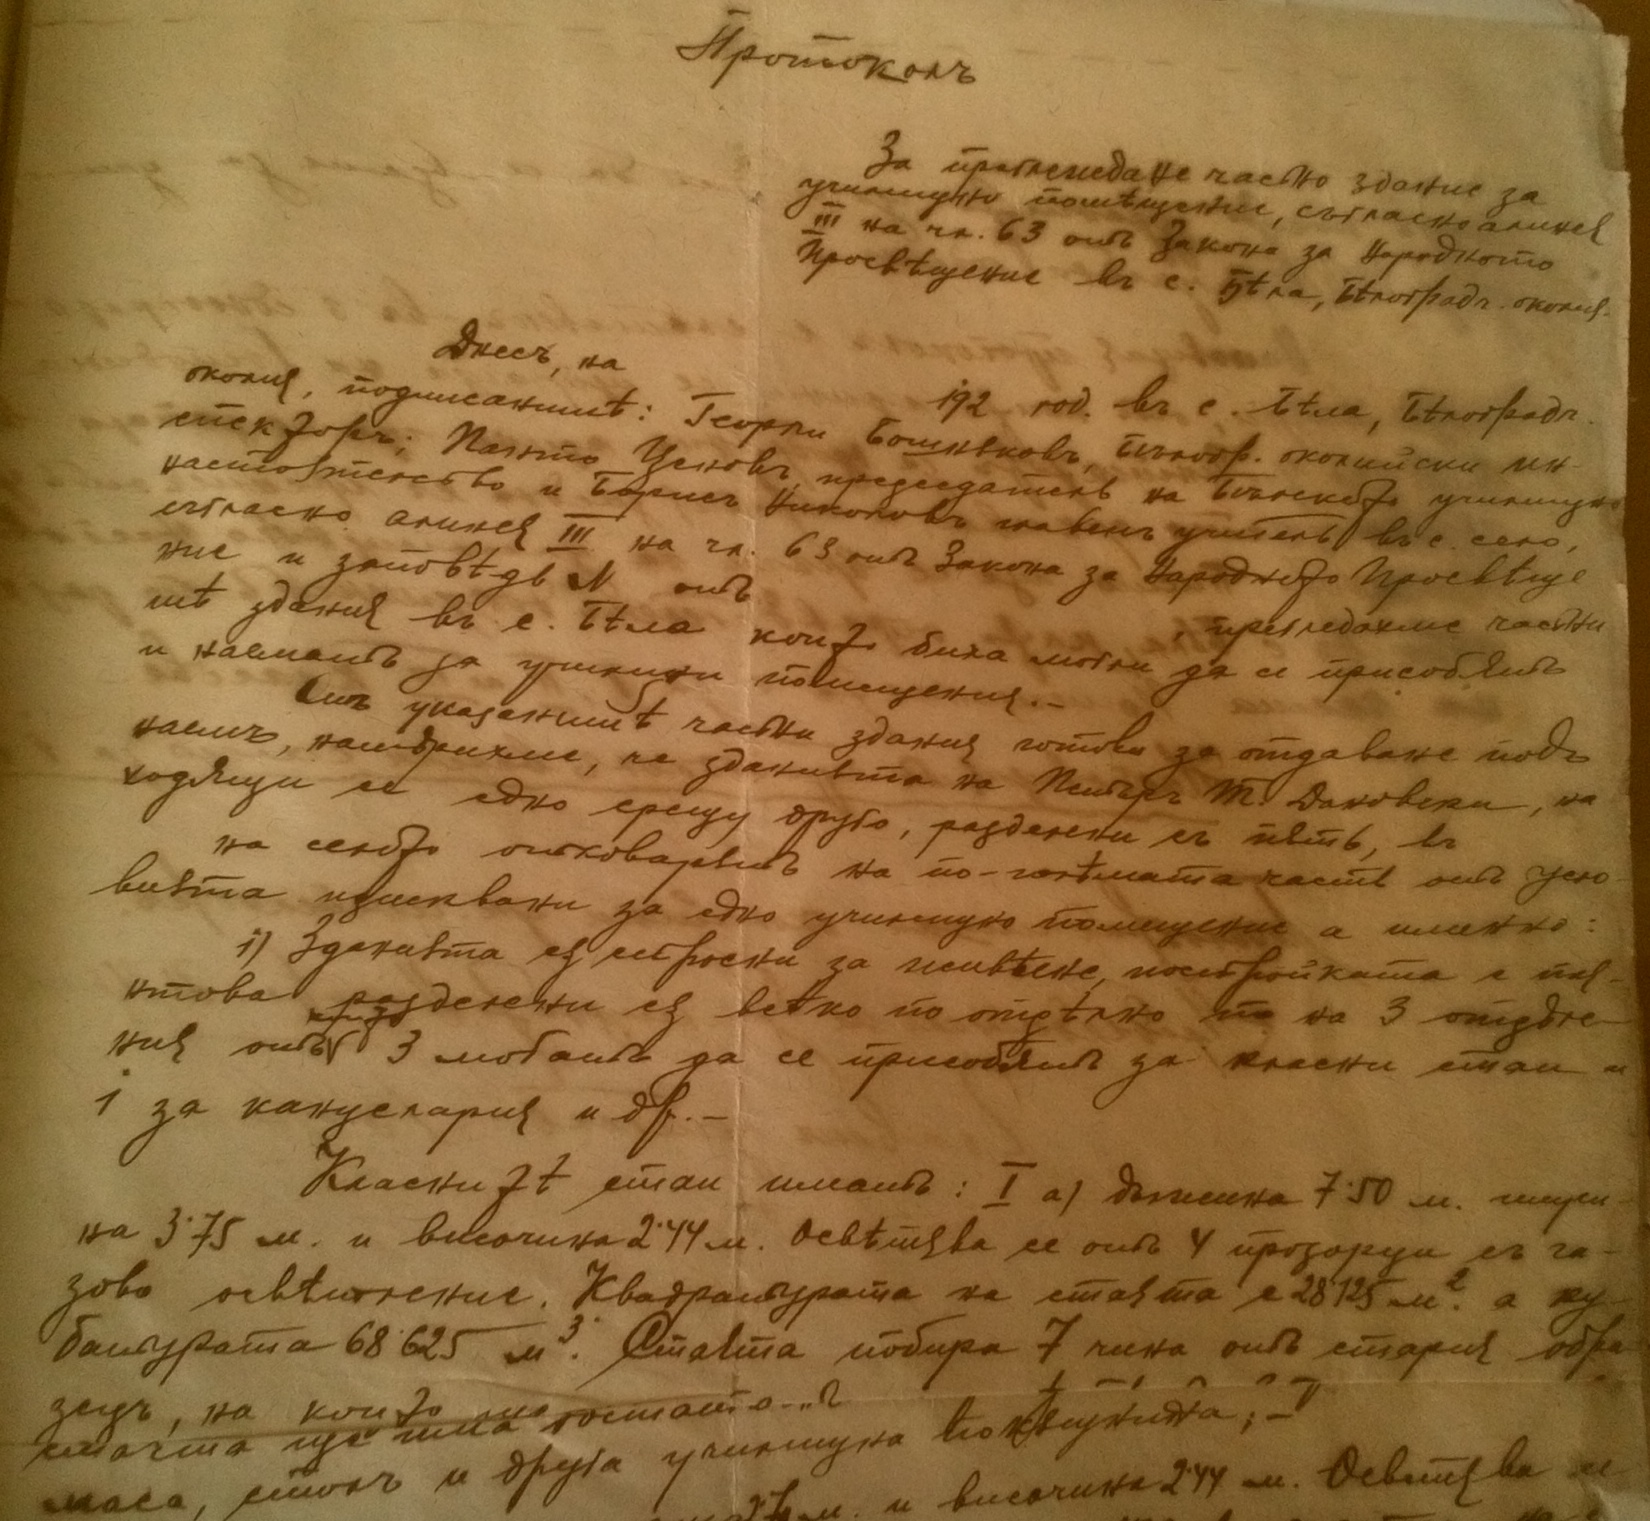 Протоколъ
За преглеждане частно здание за
училищно помѣщение, съгласно алинея
III на чл. 63 отъ Закона за Народното
Просвѣщение въ с. Бѣла, Бѣлоградч. околия.
Днесъ, на 192 год. въ с. Бѣла, Бѣлоградч.
околия, подписанитѣ: Георги Бошняковъ, Бѣлогр. околийски ин-
спекторъ; Панто Ценовъ, председатель на Бѣлското училищно
настоятелство и Борисъ Николовъ главенъ учитель въ с. село,
съгласно алинея III на чл. 63 отъ Закона за Народното Просвѣще
ние и заповѣдь N отъ , прегледахме частни
тѣ здания въ с. Бѣла които биха могли да се присобятъ
и наематъ за училищни помещения.-
Отъ указанитѣ частни здания готови за отдаване подъ
наемъ, намѣрихме, че зданията на Петъръ Т. Дановски, на
ходящи се едно срещу друго, разделени съ пѫть, въ
на селото отговарятъ на по-голѣмата часть отъ усло-
вията изисквани за едно училищно помещение а именно:
1) Зданията сѫ строени за живѣене, постройката е пая-
нтова разделени сѫ всѣко по отдѣлно на 3 отдѣле-
ния отъ 3 могатъ да се присобятъ за класни стаи и
1 за канцелария и др.-
Класнитѣ стаи иматъ: I а) дължина 7·50 м. шири-
на 3·75 м. и височина 2·44 м. Освѣтява се отъ 4 прозорци съ га-
зово освѣтление. Квадратурата на стаята е 28·125 м². а ку-
батурата 68·625 м³. Стаята побира 7 чина отъ стария обра
зецъ, на които
стаята ще има
маса, столъ и друга училищна покѫщнина;-
м. и височина 2·44 м. Освѣтява се